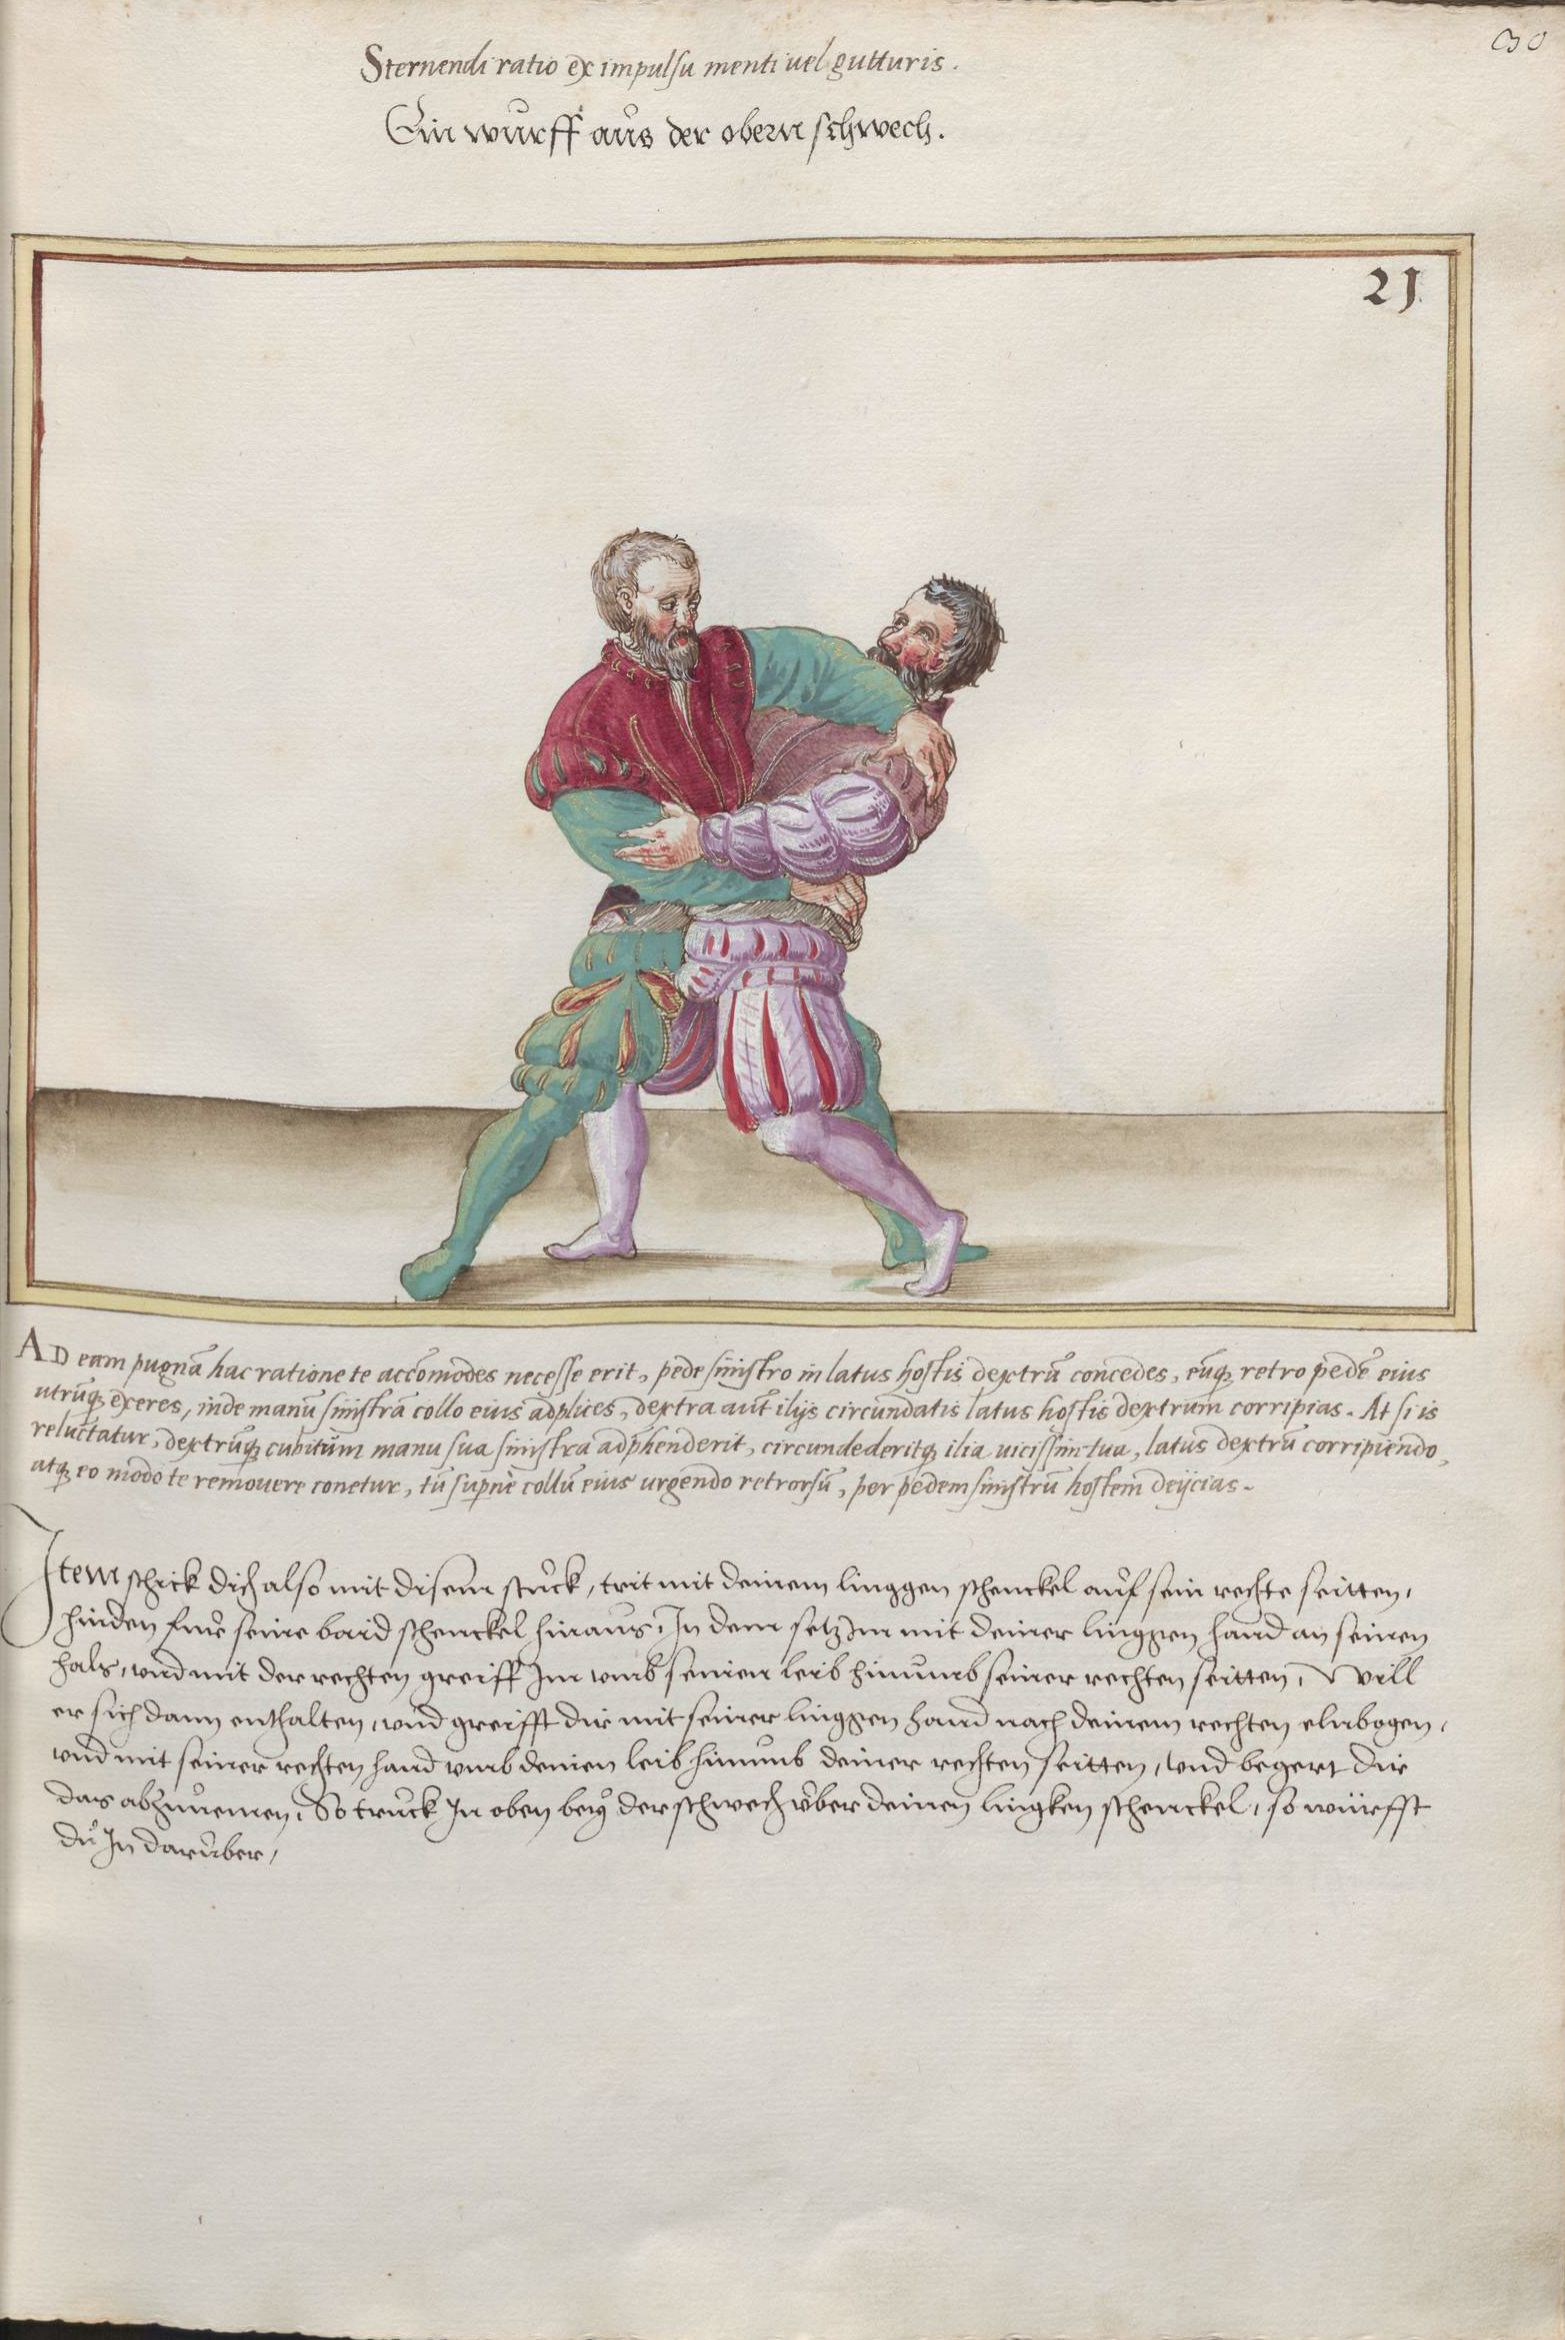 Sternendi ratio ex impulsu menti uel gutturis.
Ein wurff aus der obern schwech.
21
AD eam pugnā hac ratione te accōmodes necesse erit, pede sinistro in latus hostis dextrū concedes, eūq; retro pedē eius
utrūq; exeres, inde manū sinistrā collo eius adplices, dextra aūt ilijs circundatis latus hostis dextrum corripias. At si is
reluctatur, dextrūq; cubitum manu sua sinistra adphenderit, circundederitq; ilia uicissim tua, latus dextrū corripiendo,
atq; eo modo te remouere conetur, tū supernè collū eius urgendo retrorsū, per pedem sinistrū hostem deijcias.
Item schick dich also mit disem stuck, trit mit deinem linggen schenckel auf sein rechte seitten,
hinden fur seine baid schenckel hinaus, In dem setz Im mit deiner linggen hand an seinen
hals, vnd mit der rechten greiff Im vmb seinen leib hinumb seiner rechten seitten, Will
er sich dann enthalten, vnd greifft dir mit seiner linggen hand nach deinem rechten elnbogen,
vnd mit seiner rechten hand vmb deinen leib hinumb deiner rechten seitten, vnd begert dir
das abzunemen, So truck In oben bey der schwech vber deinen lingken schenckel, so würfft
du In daruber,